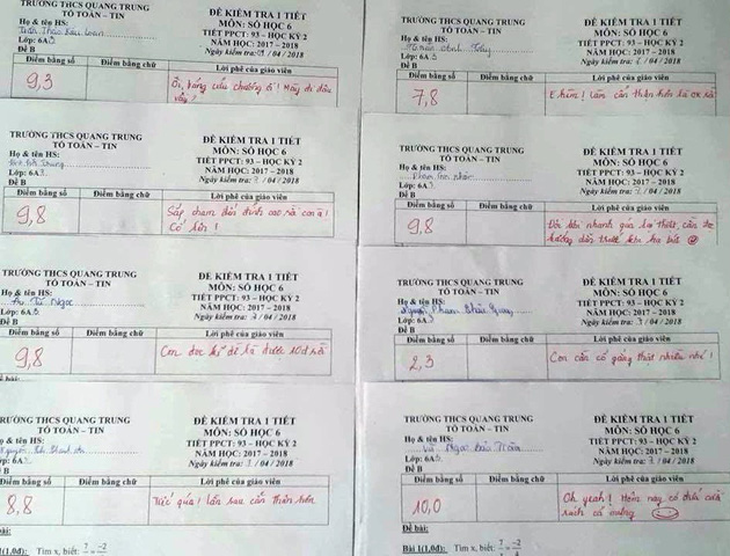 TRƯỜNG THCS QUANG TRUNG
TỔ TOÁN – TIN
Họ & tên HS:
Lớp: 6A3
Đề B
ĐỀ KIỂM TRA 1 TIẾT
MÔN: SỐ HỌC 6
TIẾT PPCT: 93 – HỌC KỲ 2
NĂM HỌC: 2017 – 2018
Ngày kiểm tra: / 04 / 2018
Điểm bằng số Điểm bằng chữ Lời phê của giáo viên
9,3
Ôi, bảng cửu chương ơi! Mày đi đâu
vậy?
TRƯỜNG THCS QUANG TRUNG
TỔ TOÁN – TIN
Họ & tên HS:
Lớp: 6A3.
Đề B
ĐỀ KIỂM TRA 1 TIẾT
MÔN: SỐ HỌC 6
TIẾT PPCT: 93 – HỌC KỲ 2
NĂM HỌC: 2017 – 2018
Ngày kiểm tra: / 04 / 2018
Điểm bằng số Điểm bằng chữ Lời phê của giáo viên
9,8
Sắp chạm đến đỉnh cao rồi con ạ!
Cố lên!
TRƯỜNG THCS QUANG TRUNG
TỔ TOÁN – TIN
Họ & tên HS:
Tú Ngọc
Lớp: 6A3
Đề B
ĐỀ KIỂM TRA 1 TIẾT
MÔN: SỐ HỌC 6
TIẾT PPCT: 93 – HỌC KỲ 2
NĂM HỌC: 2017 – 2018
Ngày kiểm tra: / 04 / 2018
Điểm bằng số Điểm bằng chữ Lời phê của giáo viên
9,8
Con đọc kĩ đề là được 10đ rồi
TRƯỜNG THCS QUANG TRUNG
TỔ TOÁN – TIN
Họ & tên HS:
Nguyễn
Lớp: 6A3
Đề B
ĐỀ KIỂM TRA 1 TIẾT
MÔN: SỐ HỌC 6
TIẾT PPCT: 93 – HỌC KỲ 2
NĂM HỌC: 2017 – 2018
Ngày kiểm tra: / 04 / 2018
Điểm bằng số Điểm bằng chữ Lời phê của giáo viên
8,8
Tiếc quá! Lần sau cẩn thận hơn
bài:
1(1,0đ): Tìm x, biết: 7 = -2
TRƯỜNG THCS QUANG TRUNG
TỔ TOÁN – TIN
Họ & tên HS:
Anh
Lớp: 6A3
Đề B
ĐỀ KIỂM TRA 1 TIẾT
MÔN: SỐ HỌC 6
TIẾT PPCT: 93 – HỌC KỲ 2
NĂM HỌC: 2017 – 2018
Ngày kiểm tra: / 04 / 2018
Điểm bằng số Điểm bằng chữ Lời phê của giáo viên
7,8
cẩn thận hơn là ok rồi
TRƯỜNG THCS QUANG TRUNG
TỔ TOÁN – TIN
Họ & tên HS:
Phạm
Lớp: 6A3
Đề B
ĐỀ KIỂM TRA 1 TIẾT
MÔN: SỐ HỌC 6
TIẾT PPCT: 93 – HỌC KỲ 2
NĂM HỌC: 2017 – 2018
Ngày kiểm tra: / 04 / 2018
Điểm bằng số Điểm bằng chữ Lời phê của giáo viên
9,8
Đôi khi nhanh quá lại thiệt, cần
TRƯỜNG THCS QUANG TRUNG
TỔ TOÁN – TIN
Họ & tên HS:
Nguyễn Phạm
Lớp: 6A3
Đề B
ĐỀ KIỂM TRA 1 TIẾT
MÔN: SỐ HỌC 6
TIẾT PPCT: 93 – HỌC KỲ 2
NĂM HỌC: 2017 – 2018
Ngày kiểm tra: / 04 / 2018
Điểm bằng số Điểm bằng chữ Lời phê của giáo viên
2,3
Con cần cố gắng thật nhiều nhé!
TRƯỜNG THCS QUANG TRUNG
TỔ TOÁN – TIN
Họ & tên HS:
Vũ Ngọc Bảo Trâm
Lớp: 6A3
Đề B
ĐỀ KIỂM TRA 1 TIẾT
MÔN: SỐ HỌC 6
TIẾT PPCT: 93 – HỌC KỲ 2
NĂM HỌC: 2017 – 2018
Ngày kiểm tra: / 04 / 2018
Điểm bằng số Điểm bằng chữ Lời phê của giáo viên
10,0
Oh yeah! Hôm nay có
Đề bài:
Bài 1(1,0đ): Tìm x, biết: 7 = -2